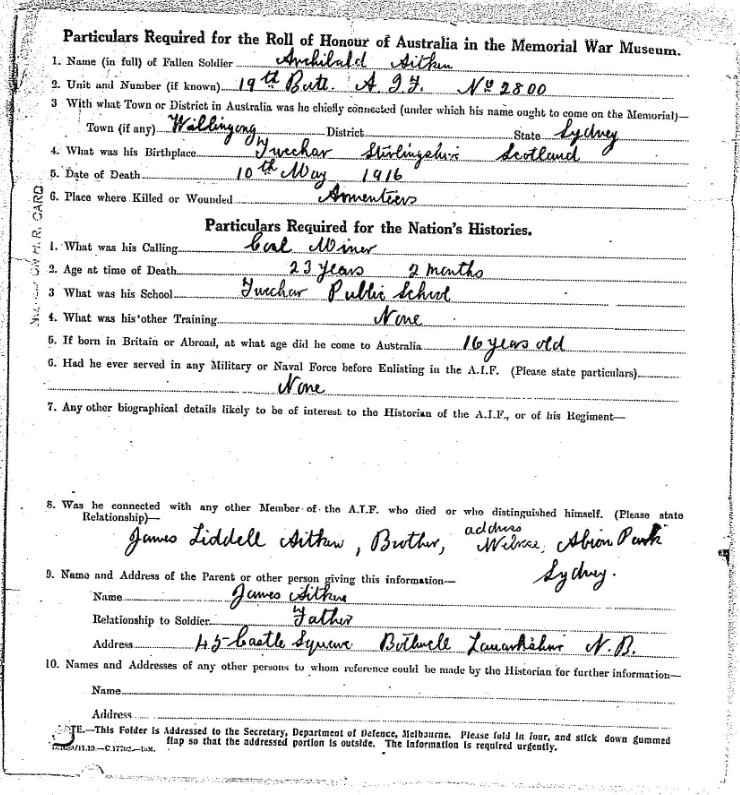 Particulars Required for the Roll of Honour of Australia in the Memorial War Museum.
1. Name (in full) of Fallen Soldier Archibald Aitken
2. Unit and Number (if known) 19th Batt. A.I.F. No 2800
3 With what Town or District in Australia was he chiefly connected (under which his name ought to come on the Memorial)—
Town (if any) Wollingong District State Sydney
4. What was his Birthplace Twechar Stirlingshire Scotland
5. Date of Death 10th May 1916
6. Place where Killed or Wounded Armentiers
Particulars Required for the Nation's Histories.
1. What was his Calling Coal Miner
2. Age at time of Death 23 years 2 months
3 What was his School Twechar Public School
4. What was his other Training None
5. If born in Britain or Abroad, at what age did he come to Australia 16 years old
6. Had he ever served in any Military or Naval Force before Enlisting in the A.I.F. (Please state particulars)
None
7. Any other biographical details likely to be of interest to the Historian of the A.I.F., or of his Regiment—
8. Was he connected with any other Member of the A.I.F. who died or who distinguished himself. (Please state
Relationship)—
James Liddell Aitken, Brother, address Albion Park
Sydney.
9. Name and Address of the Parent or other person giving this information—
Name James Aitken
Relationship to Soldier Father
Address 45 Castle Square Bothwell Lanarkshire N.B.
10. Names and Addresses of any other persons to whom reference could be made by the Historian for further information—
Name
Address
TE.—This Folder is Addressed to the Secretary, Department of Defence, Melbourne. Please fold in four, and stick down gummed
flap so that the addressed portion is outside. The information is required urgently.
H.R. CARD